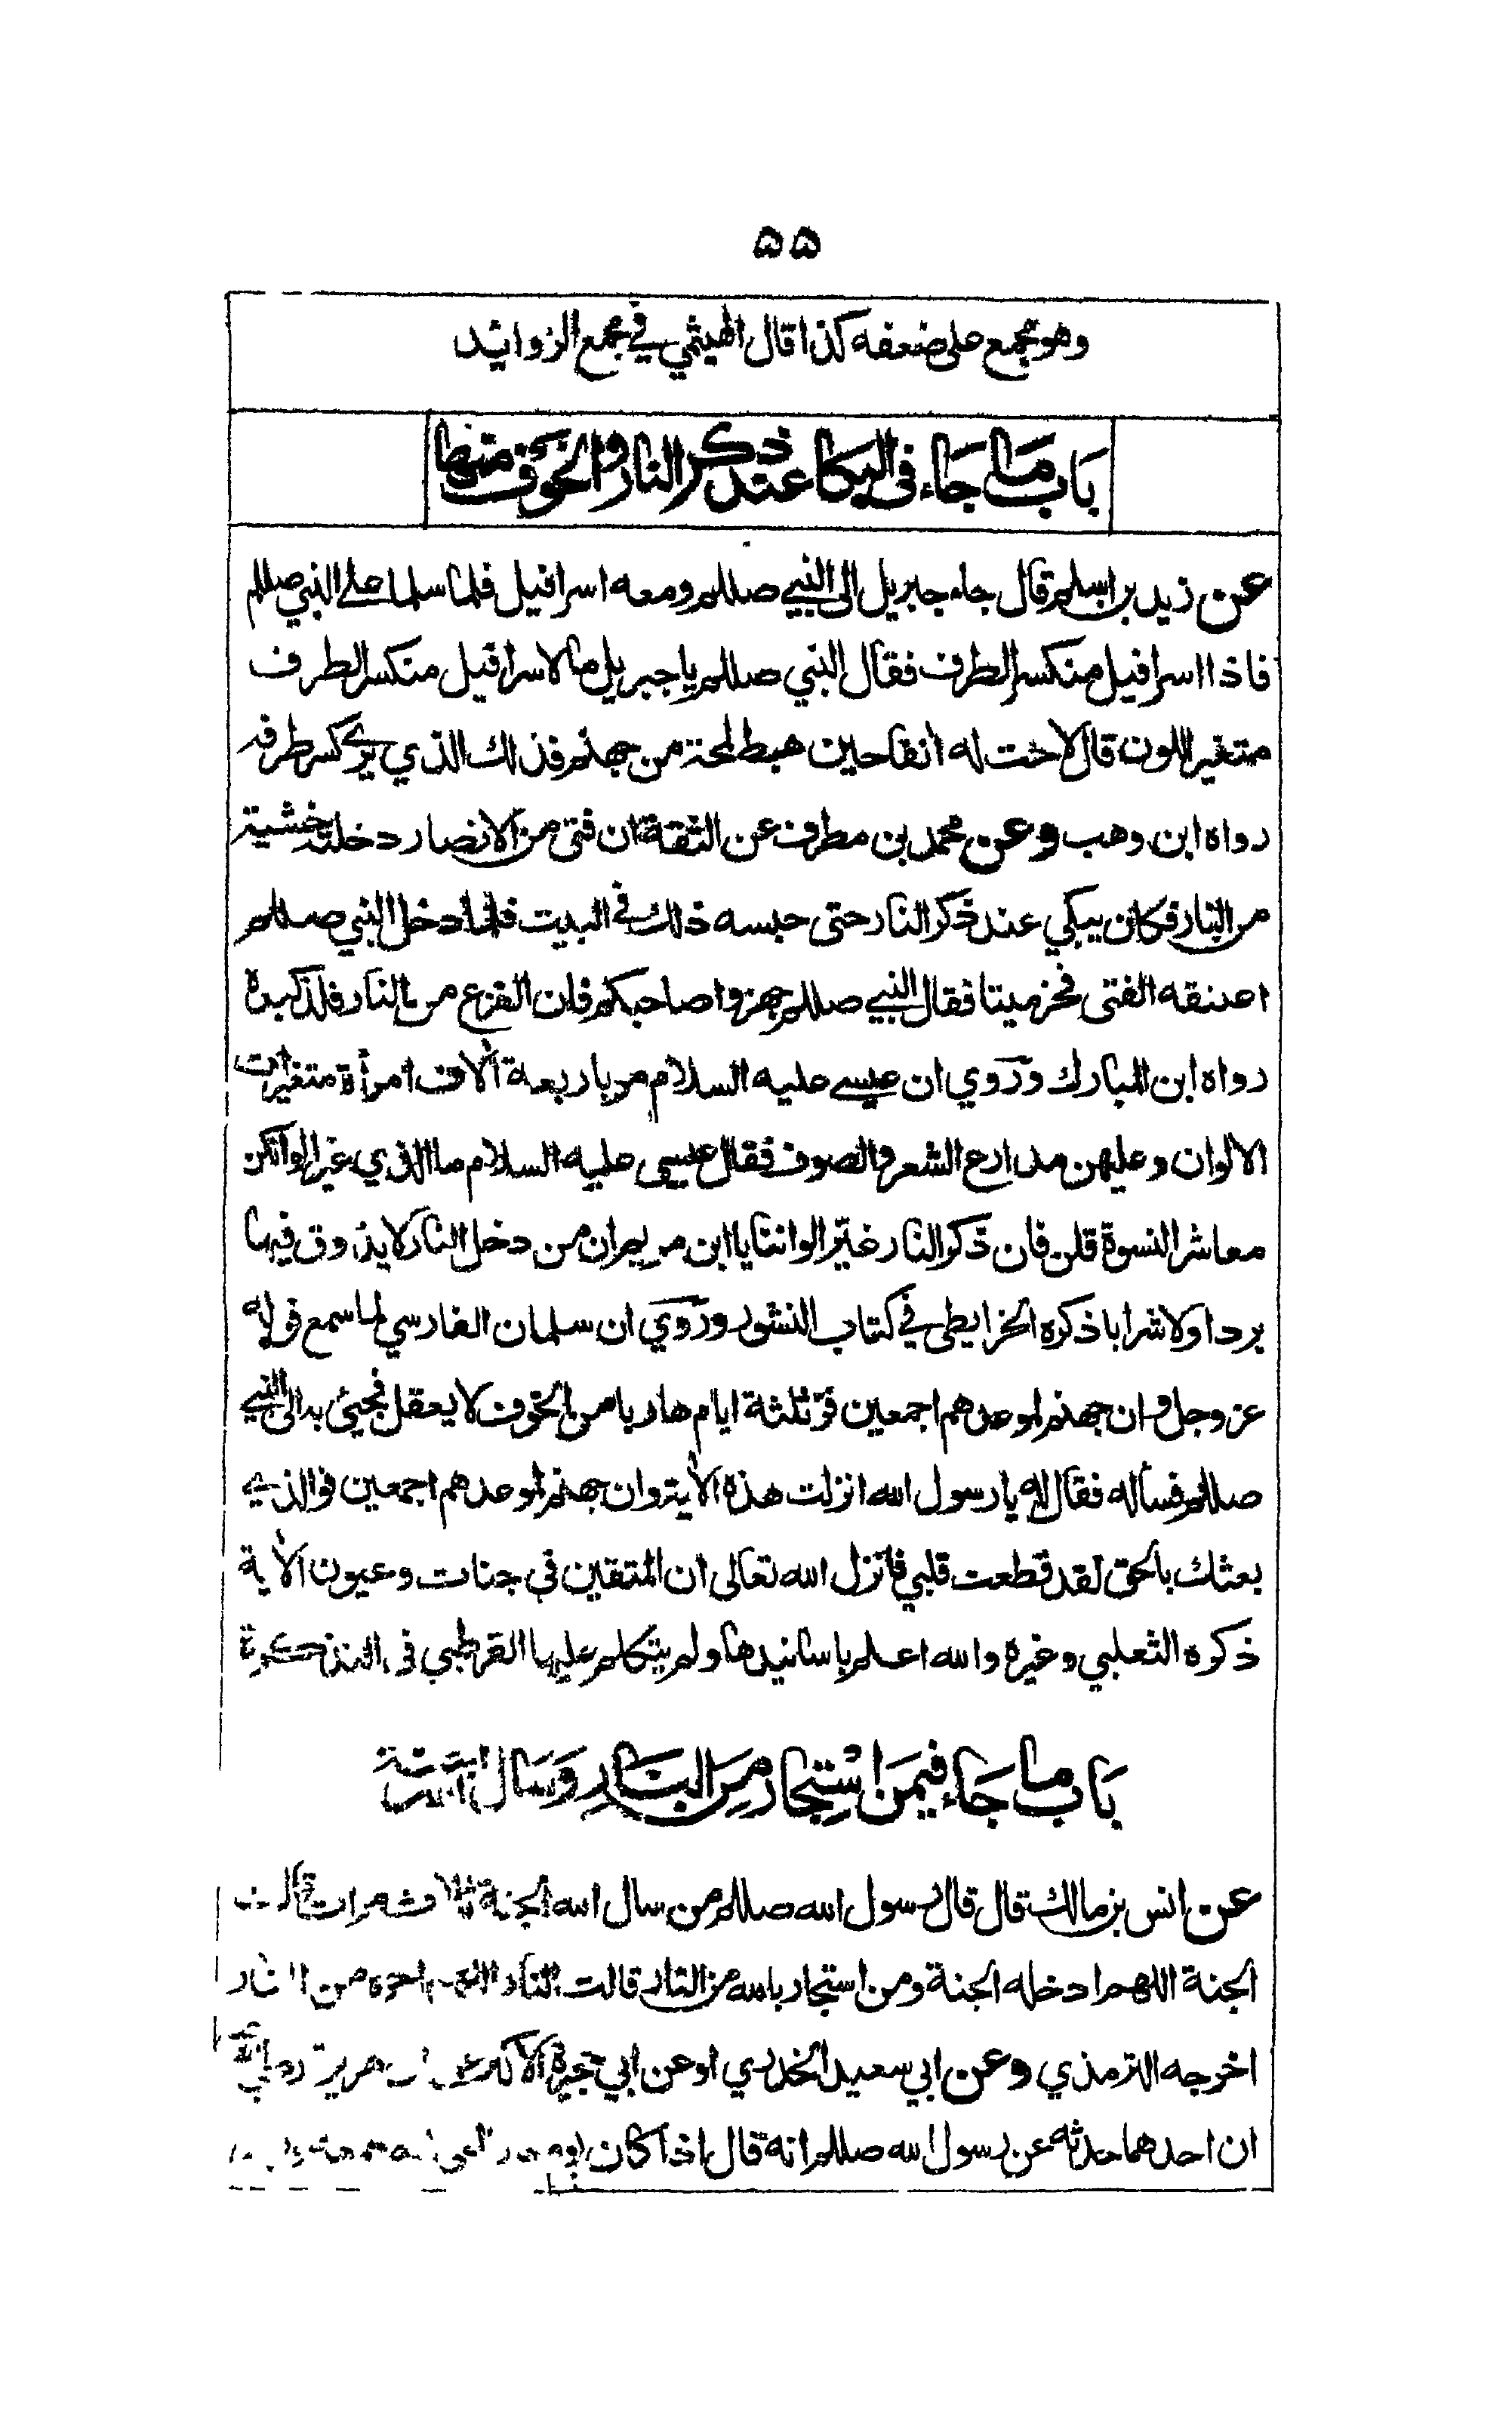 ۵۵
وهو مجمع على ضعفه كذا قال الهيثمي في مجمع الزوائد
باب ما جاء في البكا عند ذكر النار والخوف منها
عن زيد بن اسلم قال جاء جبريل الى النبي صللم ومعه اسرافيل فلما سلما على النبي صللم
فاذا اسرافيل منكسر الطرف فقال النبي صللم يا جبريل ما لاسرافيل منكسر الطرف
متغير اللون قال لاحت له انفا حين هبط لمحة من جهنم فذلك الذي ترى كسر طرفه
رواه ابن وهب وعن محمد بن مطرف عن الثقة ان فتى من الانصار دخلته خشية
من النار فكان يبكي عند ذكر النار حتى حبسه ذلك في البيت فلما دخل النبي صللم
اعتنقه الفتى فخر ميتا فقال النبي صللم جهزوا صاحبكم فان الفزع من النار فلذ كبده
رواه ابن المبارك وروي ان عيسى عليه السلام مر باربعة آلاف امرأة متغيرات
الالوان وعليهن مدارع الشعر والصوف فقال عيسى عليه السلام ما الذي غير الوانكن
معاشر النسوة قلن فان ذكر النار غيّر الواننا يا ابن مريم ان من دخل النار لا يذوق فيها
بردا ولا شرابا ذكره الخرايطي في كتاب النشور وروي ان سلمان الفارسي لما سمع قوله
عز وجل وان جهنم لموعدهم اجمعين فرّ ثلثة ايام هاربا من الخوف لا يعقل فجيئ به الى النبي
صللم فسأله فقال له يا رسول الله انزلت هذه الآية وان جهنم لموعدهم اجمعين فوالذي
بعثك بالحق لقد قطعت قلبي فانزل الله تعالى ان المتقين في جنات وعيون الآية
ذكره الثعلبي وغيره والله اعلم باسانيدها ولم يتكلم عليها القرطبي في التذكرة
باب ما جاء فيمن استجار من النار وسال
عن انس بن مالك قال قال رسول الله صللم من سال الله الجنة ثلاث مرات قالت
الجنة اللهم ادخله الجنة ومن استجار بالله من النار قالت النار اللهم اجره من النار
اخرجه الترمذي وعن ابي سعيد الخدري او عن ابي حجيرة الاكبر هريرة
ان احدهما حدثه عن رسول الله صللم انه قال اذا كان